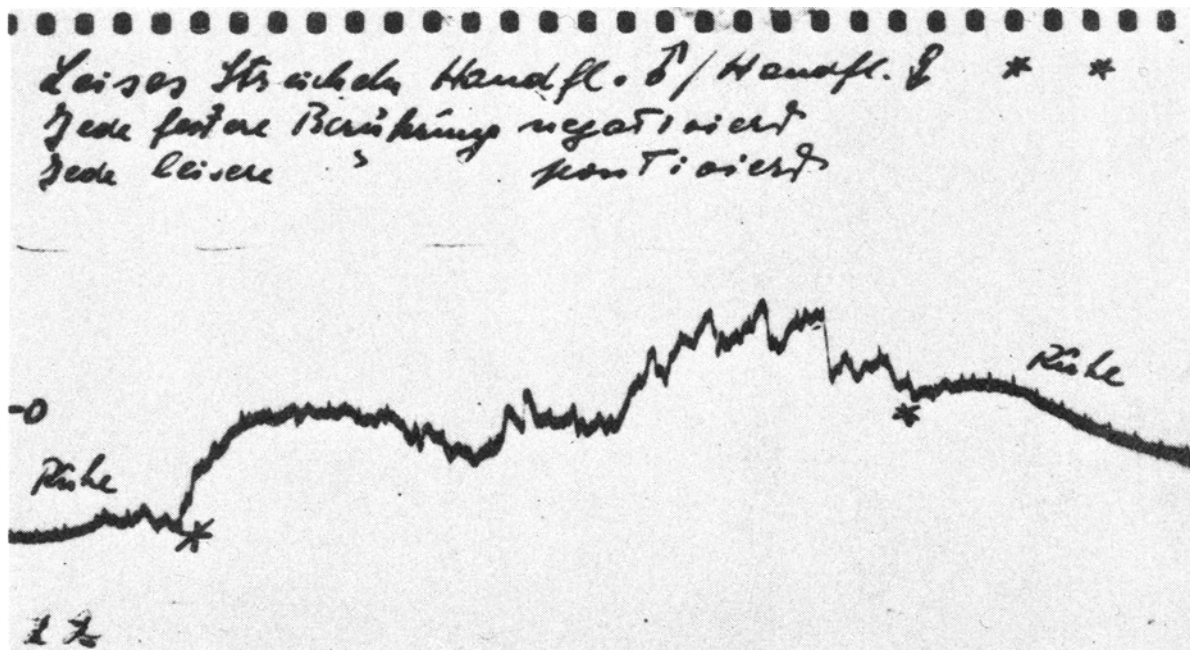 Leises Streicheln Handfl. ♂ / Handfl. ♀ * *
Jede festere Berührung negativiert
Jede leisere " positiviert
Ruhe
-0
Ruhe
*
*